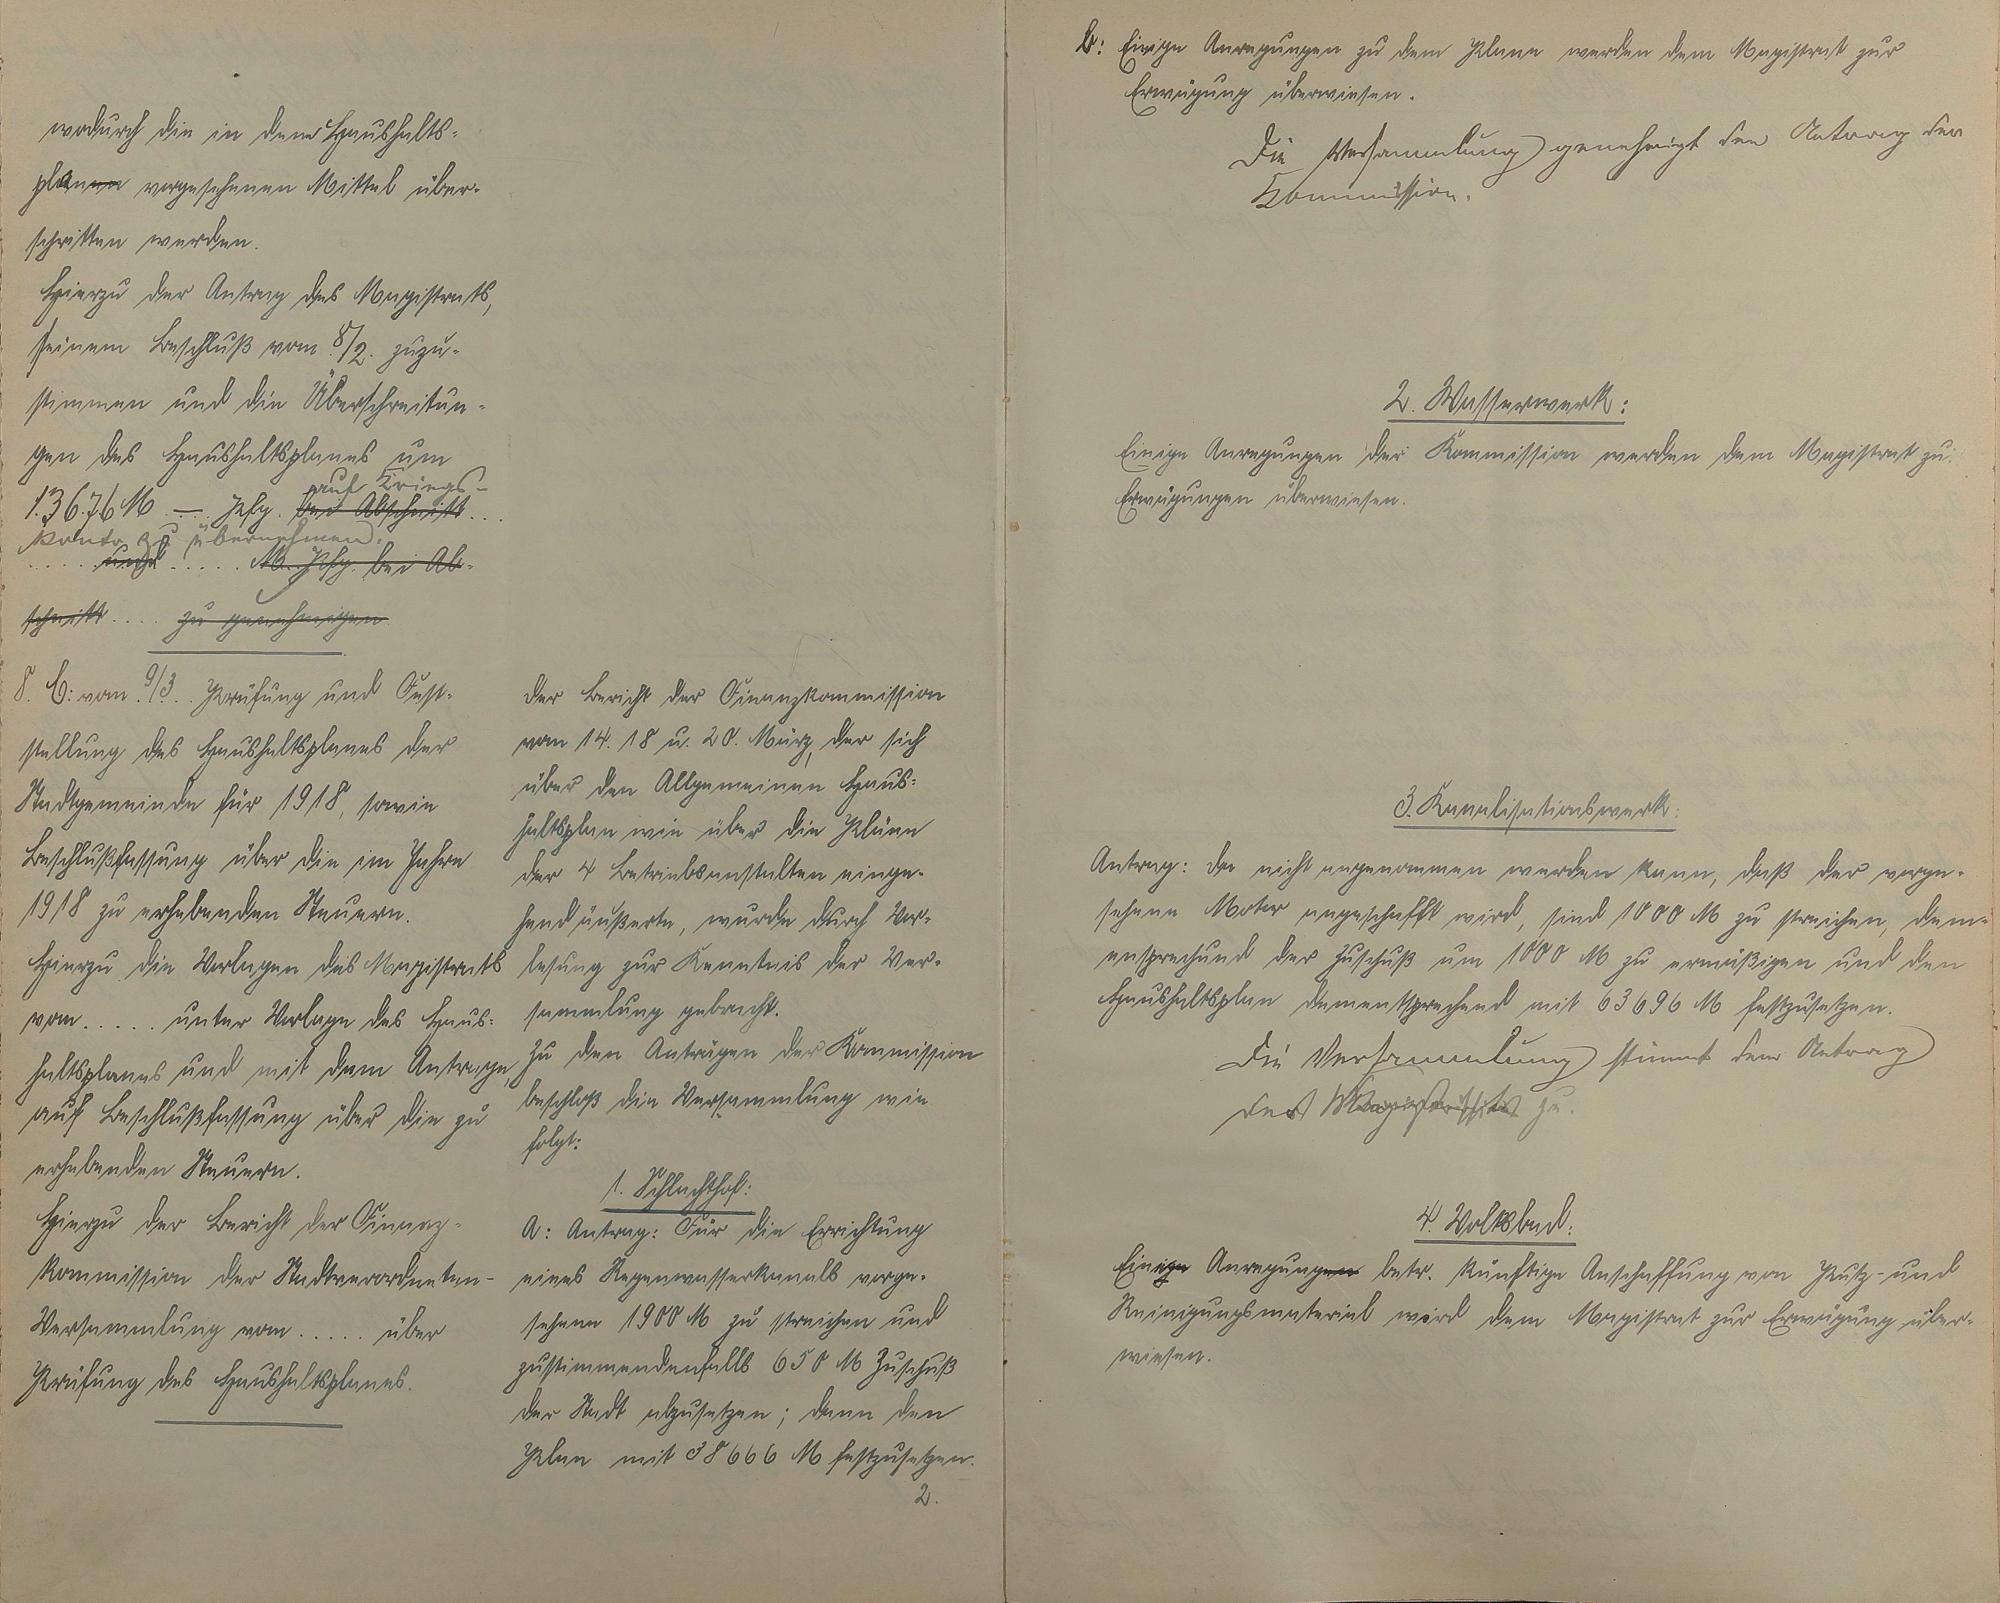 wodurch die in dem Haushalts-
plan vorgesehenen Mittel über-
schritten werden.
Hierzu der Antrag des Magistrats,
seinem Beschluß vom 8/2. zuzu-
stimmen und die Überschreitun-
gen des Haushaltsplanes um
auf Kriegs-
1367,76 M — Pfg. bei Abschnitt ...
konto zu übernehmen.
..... und ..... M. Pfg. bei Ab-
schnitt .... zu genehmigen
8. C: vom 9/3. Prüfung und Fest-
stellung des Haushaltsplanes der
Stadtgemeinde für 1918, sowie
Beschlußfassung über die im Jahre
1918 zu erhebenden Steuern.
Hierzu die Vorlagen des Magistrats
vom ..... unter Vorlage des Haus-
haltsplanes und mit dem Antrage,
auf Beschlußfassung über die zu
erhebenden Steuern.
Hierzu der Bericht der Finanz-
kommission der Stadtverordneten-
Versammlung vom ..... über
Prüfung des Haushaltsplanes.
Der Bericht der Finanzkommission
vom 14. 18 u. 20. März, der sich
über den Allgemeinen Haus-
haltsplan wie über die Pläne
der 4 Betriebsanstalten einge-
hend äußerte, wurde durch Ver-
lesung zur Kenntnis der Ver-
sammlung gebracht.
Zu den Anträgen der Kommission
beschloß die Versammlung wie
folgt:
1. Schlachthof:
A: Antrag: Für die Errichtung
eines Regenwasserkanals vorge-
sehene 1900 M zu streichen und
zustimmendenfalls 650 M Zuschuß
der Stadt abzusetzen; dann den
Plan mit 38666 M festzusetzen.
2.
b: Einige Anregungen zu dem Plane werden dem Magistrat zur
Erwägung überwiesen.
Die Versammlung genehmigt den Antrag der
Kommission.
2. Wasserwerk:
Einige Anregungen der Kommission werden dem Magistrat zu
Erwägungen überwiesen.
3. Kanalisationswerk:
Antrag: Da nicht angenommen werden kann, daß der vorge-
sehene Motor angeschafft wird, sind 1000 M zu streichen, dem-
entsprechend der Zuschuß um 1000 M zu ermäßigen und den
Haushaltsplan dementsprechend mit 63696 M festzusetzen.
Die Versammlung stimmt dem Antrag
des Magistrats zu.
4. Volksbad:
Einige Anregungen betr. künftige Anschaffung von Putz- und
Reinigungsmaterial wird dem Magistrat zur Erwägung über-
wiesen.